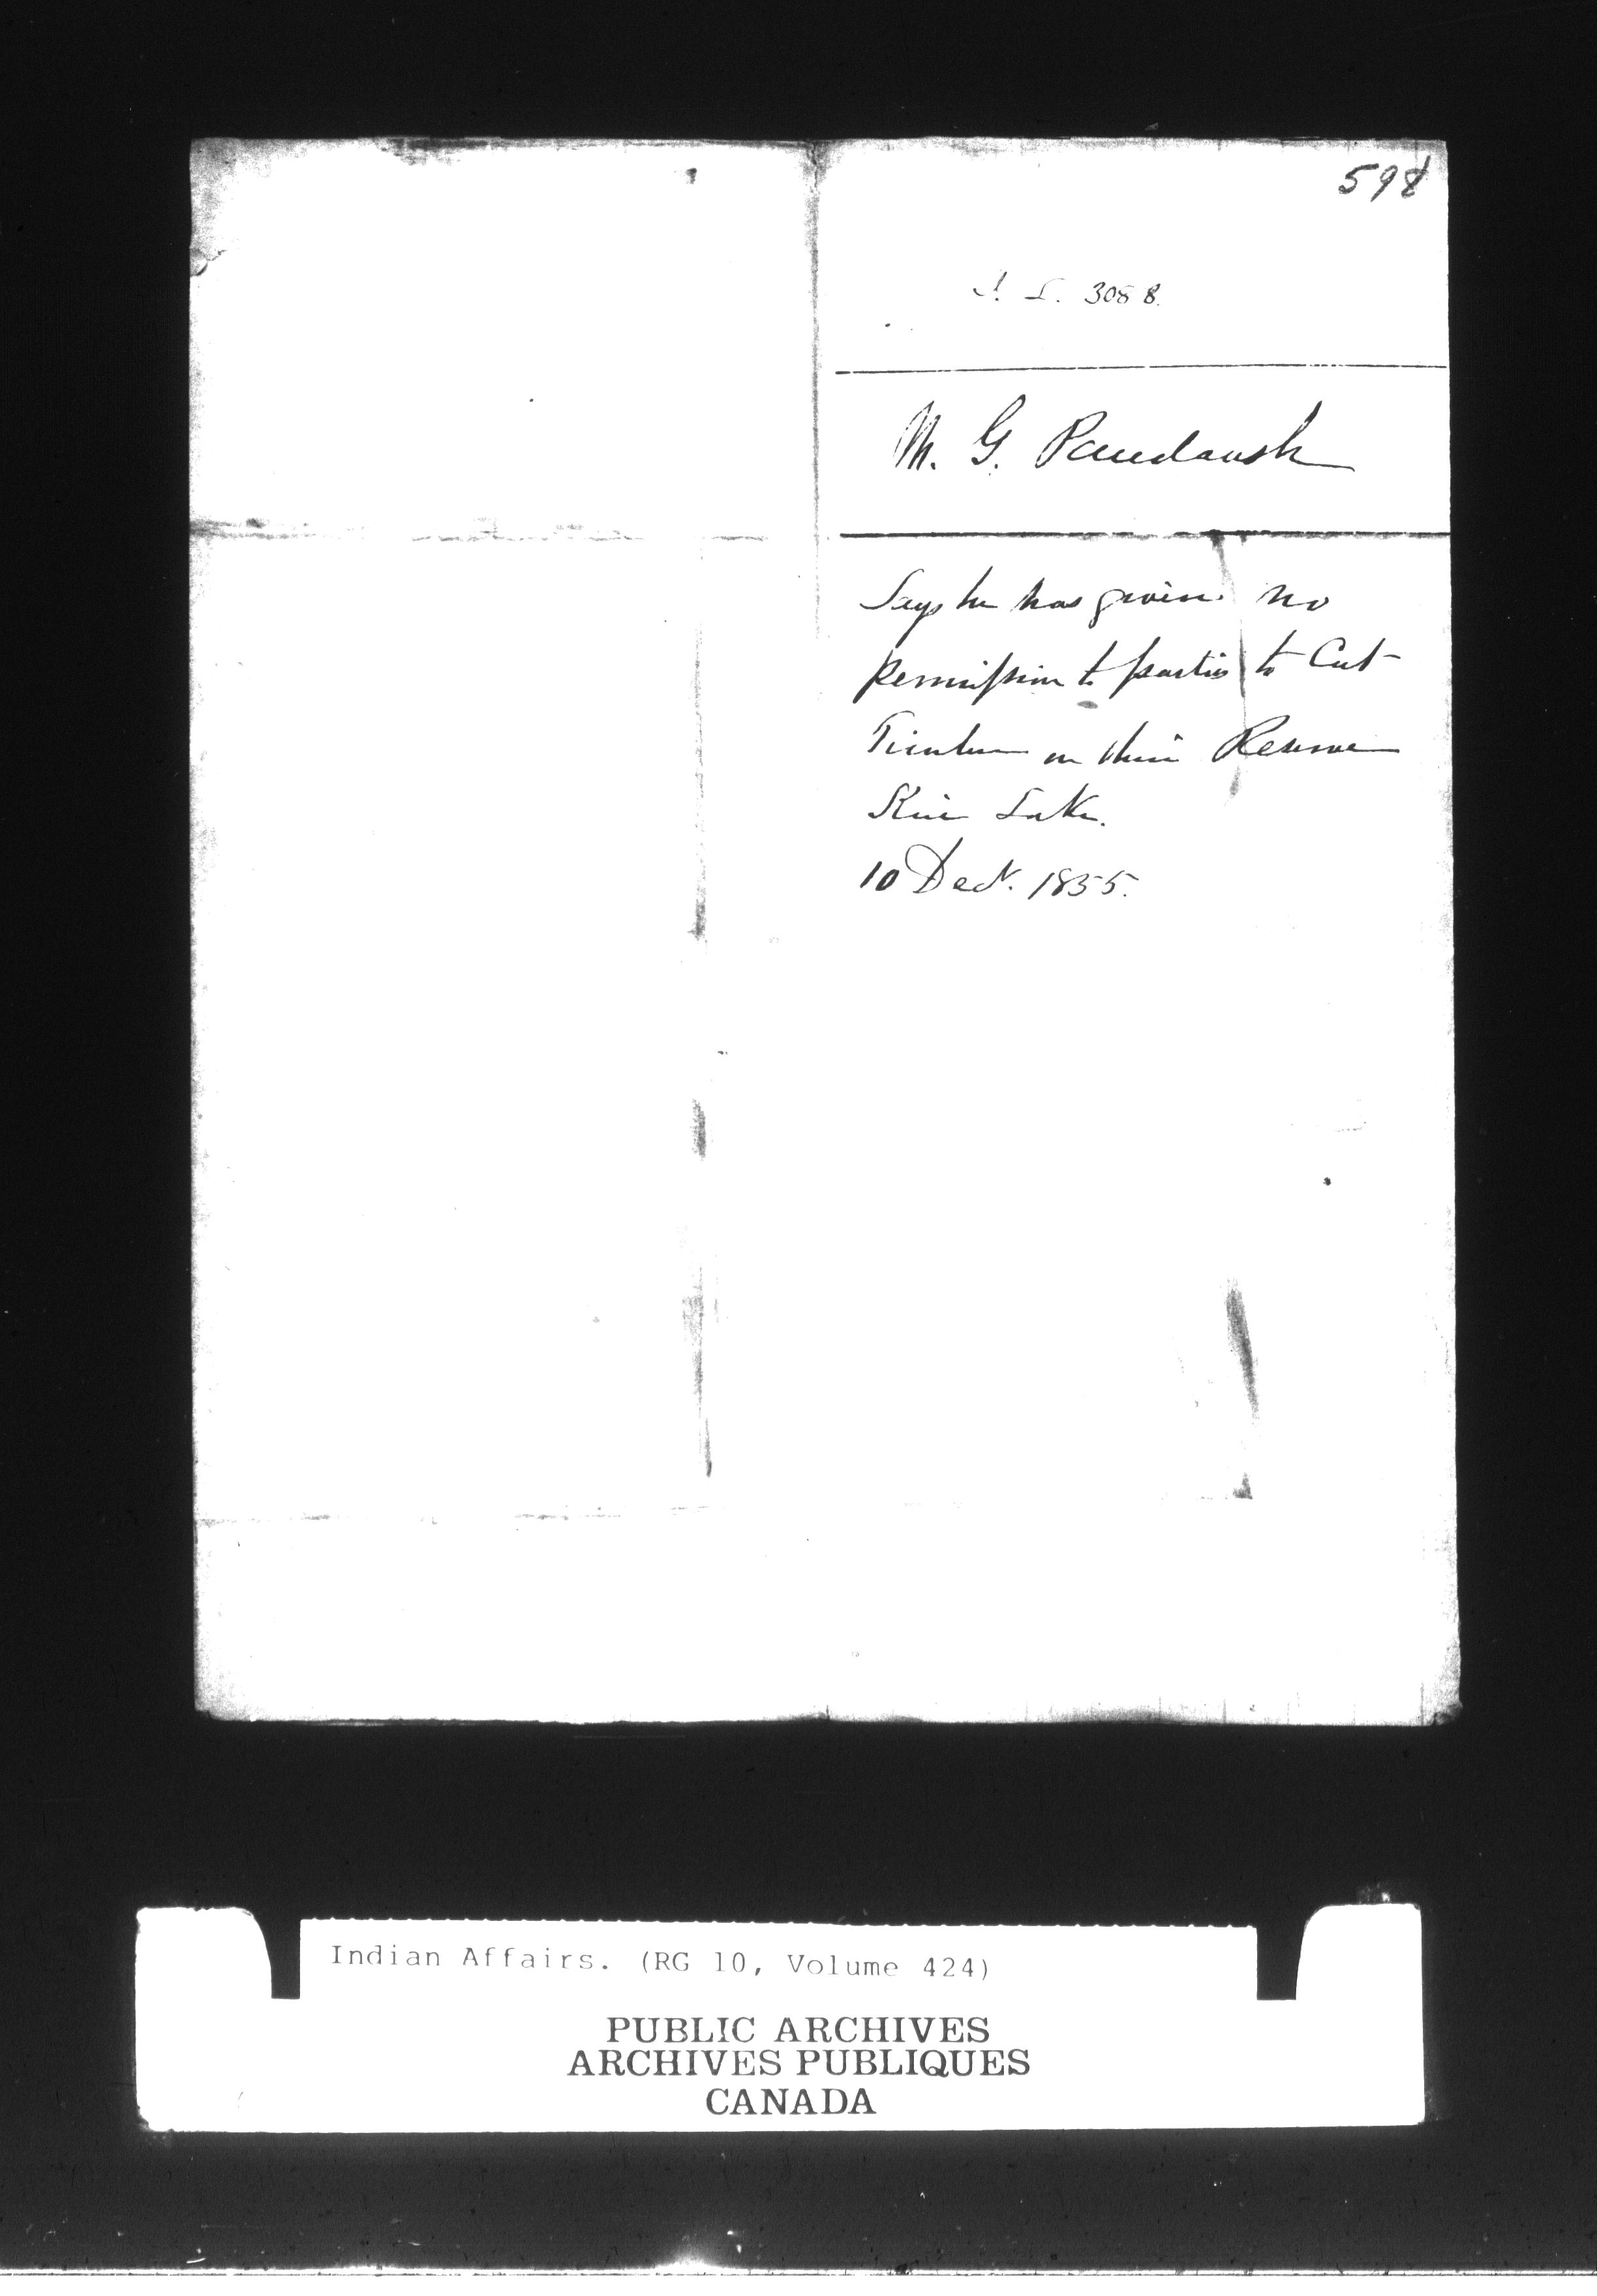 598
I. L. 3088.
M. G. Paudaush
Says he has given no
permission to parties to Cut
Timber on their Reserve
Rice Lake.
10 Decr. 1855.
Indian Affairs. (RG 10, Volume 424)
PUBLIC ARCHIVES
ARCHIVES PUBLIQUES
CANADA